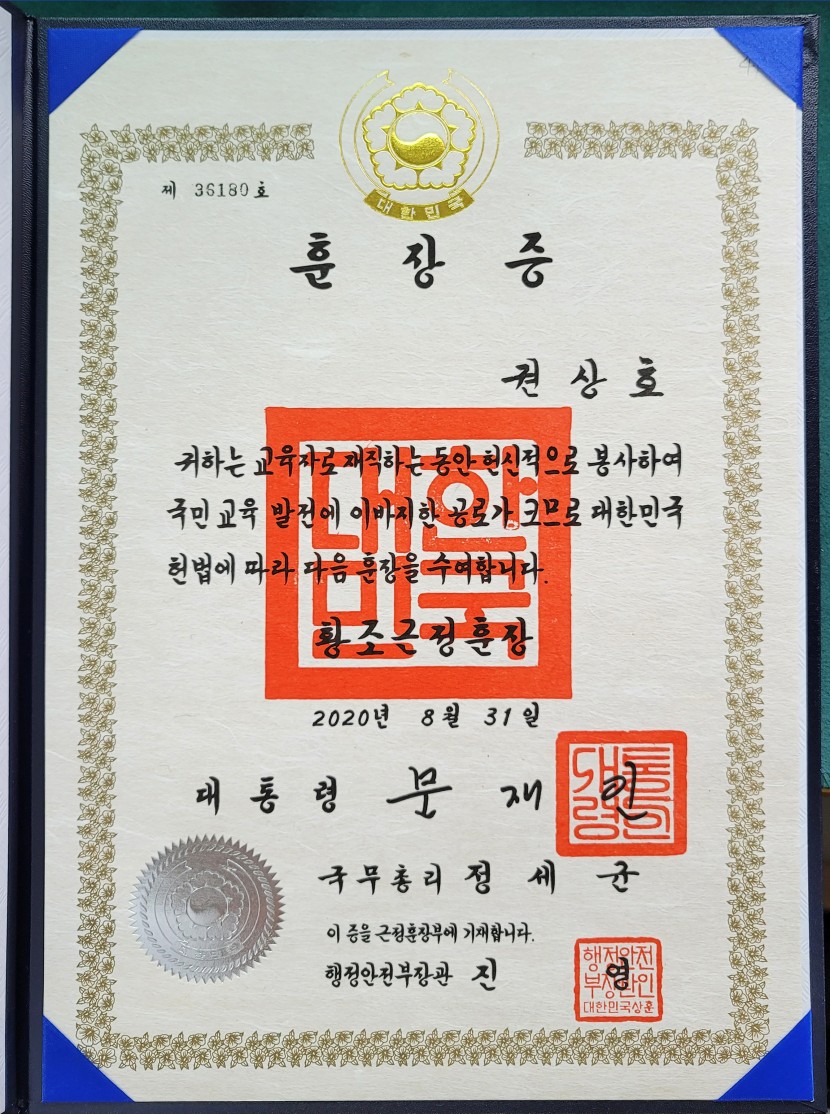 대한민국
제 36180 호
훈장증
권상호
귀하는 교육자로 재직하는 동안 헌신적으로 봉사하여
국민 교육 발전에 이바지한 공로가 크므로 대한민국
헌법에 따라 다음 훈장을 수여합니다.
대한
민국
황조근정훈장
2020년 8월 31일
대통령 문재인
국무총리 정세균
이 증을 근정훈장부에 기재합니다.
행정안전부장관 진영
행정안전
부장관인
대한민국상훈